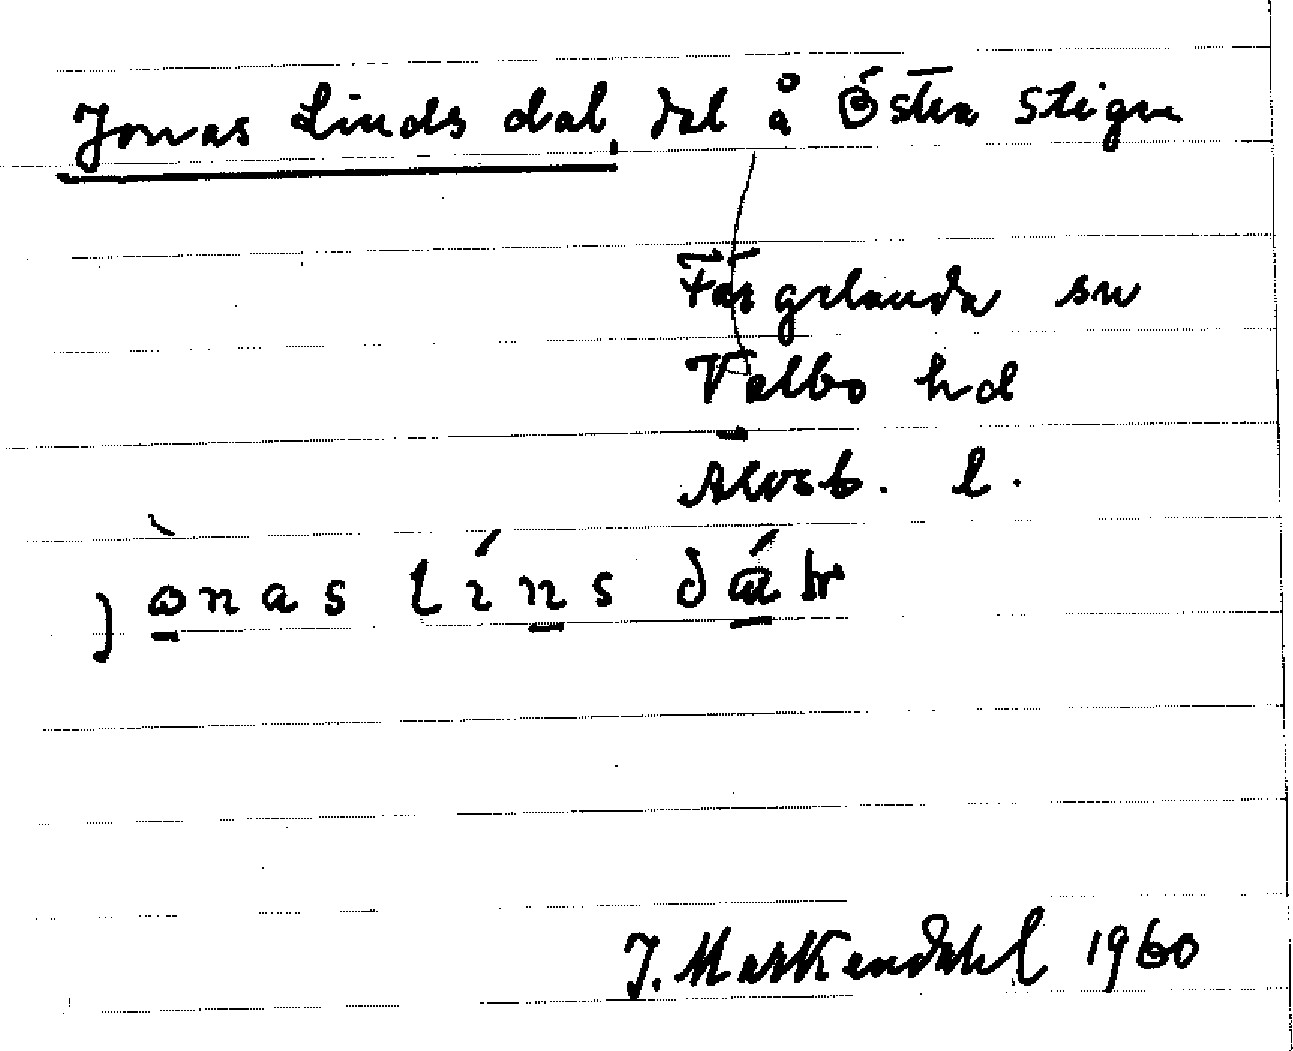 Jonas Linds dal, dal å Östra Stigen
Färgelanda sn
Valbo hd
Älvsb. l.
jònas líns dáł
J. Markendahl 1960